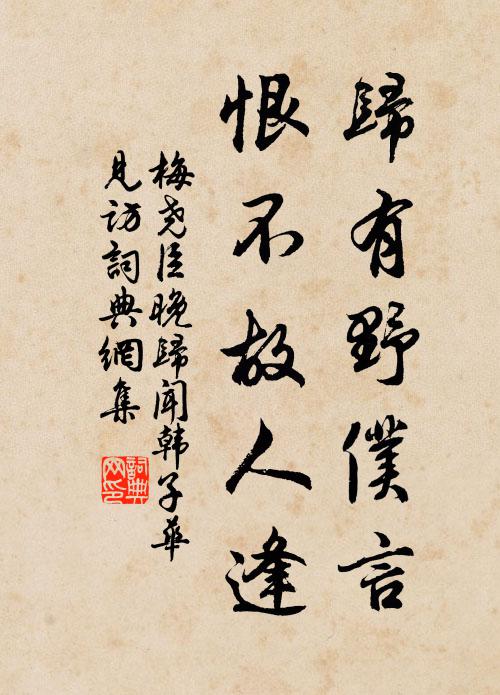 歸有野僕言
恨不故人逢
梅堯臣晚歸聞韩子華
見訪詞典網集
詞典
网印